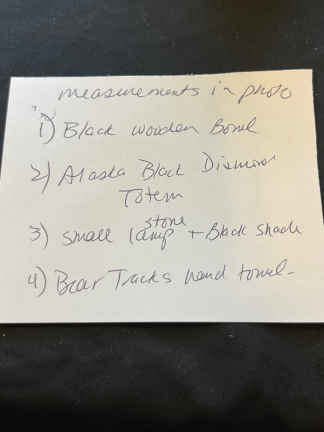 measurements in photo
1) Black wooden Bowl
2) Alaska Black Diamond
Totem
3) small stone lamp + Black shade
4) Bear Tracks hand towel